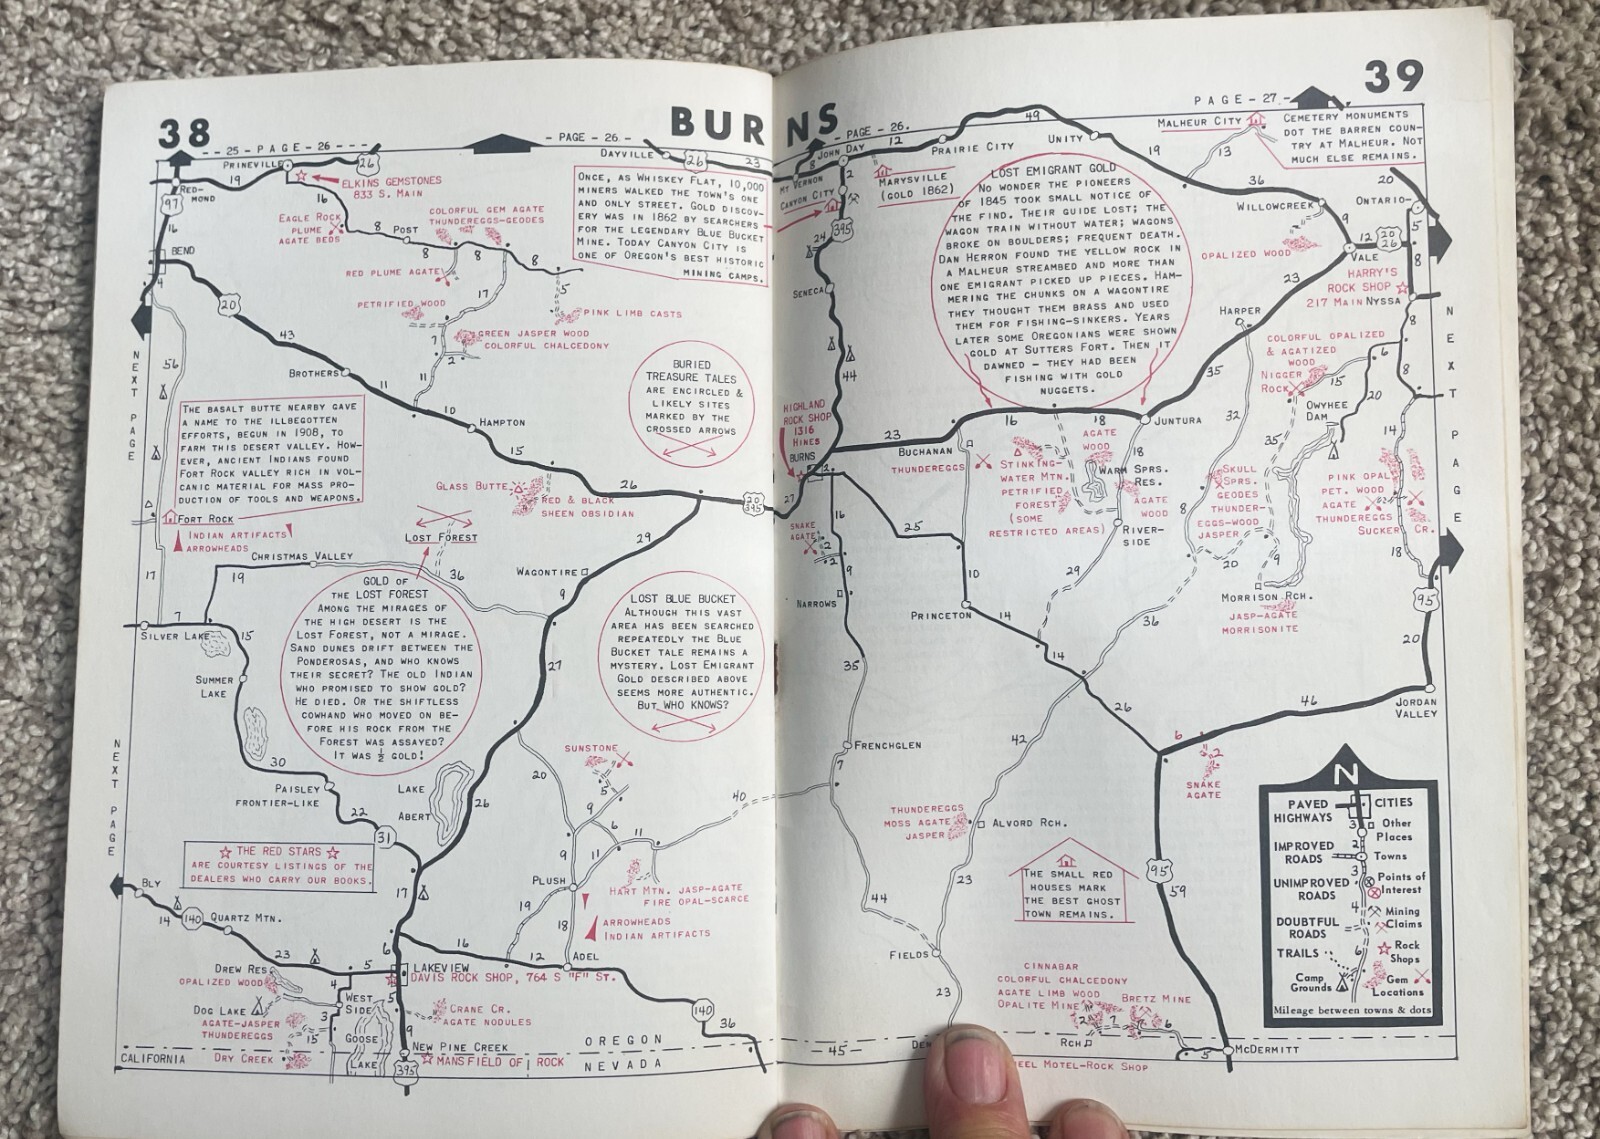 38
BURNS
39
25 - PAGE - 26
- PAGE - 26 -
- PAGE - 26.
PAGE - 27
PRINEVILLE
26
DAYVILLE
26
23
JOHN DAY
12
PRAIRIE CITY
49
UNITY
MALHEUR CITY
CEMETERY MONUMENTS
DOT THE BARREN COUN-
TRY AT MALHEUR. NOT
MUCH ELSE REMAINS.
19
13
36
20
RED-
MOND
97
19
ELKINS GEMSTONES
833 S. MAIN
16
16
EAGLE ROCK
PLUME
AGATE BEDS
8
POST
8
8
8
5
COLORFUL GEM AGATE
THUNDEREGGS-GEODES
RED PLUME AGATE
17
PETRIFIED WOOD
PINK LIMB CASTS
GREEN JASPER WOOD
COLORFUL CHALCEDONY
7
2
11
ONCE, AS WHISKEY FLAT, 10,000
MINERS WALKED THE TOWN'S ONE
AND ONLY STREET. GOLD DISCOV-
ERY WAS IN 1862 BY SEARCHERS
FOR THE LEGENDARY BLUE BUCKET
MINE. TODAY CANYON CITY IS
ONE OF OREGON'S BEST HISTORIC
MINING CAMPS.
MT VERNON
8
CANYON CITY
2
MARYSVILLE
(GOLD 1862)
395
24
SENECA
44
LOST EMIGRANT GOLD
NO WONDER THE PIONEERS
OF 1845 TOOK SMALL NOTICE OF
THE FIND. THEIR GUIDE LOST; THE
WAGON TRAIN WITHOUT WATER; WAGONS
BROKE ON BOULDERS; FREQUENT DEATH.
DAN HERRON FOUND THE YELLOW ROCK IN
A MALHEUR STREAMBED AND MORE THAN
ONE EMIGRANT PICKED UP PIECES. HAM-
MERING THE CHUNKS ON A WAGONTIRE
THEY THOUGHT THEM BRASS AND USED
THEM FOR FISHING-SINKERS. YEARS
LATER SOME OREGONIANS WERE SHOWN
GOLD AT SUTTERS FORT. THEN IT
DAWNED - THEY HAD BEEN
FISHING WITH GOLD
NUGGETS.
WILLOWCREEK
9
ONTARIO
5
12
20
26
VALE
8
OPALIZED WOOD
HARRY'S
ROCK SHOP
217 MAIN NYSSA
23
HARPER
8
COLORFUL OPALIZED
& AGATIZED
WOOD
6
NIGGER
ROCK
15
8
OWYHEE
DAM
20
35
32
35
14
BEND
4
20
43
56
BROTHERS
11
10
HAMPTON
15
26
20
395
27
NEXT PAGE
NEXT PAGE
BURIED
TREASURE TALES
ARE ENCIRCLED &
LIKELY SITES
MARKED BY THE
CROSSED ARROWS
THE BASALT BUTTE NEARBY GAVE
A NAME TO THE ILLBEGOTTEN
EFFORTS, BEGUN IN 1908, TO
FARM THIS DESERT VALLEY. HOW-
EVER, ANCIENT INDIANS FOUND
FORT ROCK VALLEY RICH IN VOL-
CANIC MATERIAL FOR MASS PRO-
DUCTION OF TOOLS AND WEAPONS.
GLASS BUTTE
RED & BLACK
SHEEN OBSIDIAN
FORT ROCK
INDIAN ARTIFACTS
ARROWHEADS
LOST FOREST
CHRISTMAS VALLEY
19
36
17
7
SILVER LAKE
15
SUMMER
LAKE
30
PAISLEY
FRONTIER-LIKE
22
31
29
WAGONTIRE
9
27
26
LAKE
ABERT
GOLD OF
THE LOST FOREST
AMONG THE MIRAGES OF
THE HIGH DESERT IS THE
LOST FOREST, NOT A MIRAGE.
SAND DUNES DRIFT BETWEEN THE
PONDEROSAS, AND WHO KNOWS
THEIR SECRET? THE OLD INDIAN
WHO PROMISED TO SHOW GOLD?
HE DIED. OR THE SHIFTLESS
COWHAND WHO MOVED ON BE-
FORE HIS ROCK FROM THE
FOREST WAS ASSAYED?
IT WAS ½ GOLD!
LOST BLUE BUCKET
ALTHOUGH THIS VAST
AREA HAS BEEN SEARCHED
REPEATEDLY THE BLUE
BUCKET TALE REMAINS A
MYSTERY. LOST EMIGRANT
GOLD DESCRIBED ABOVE
SEEMS MORE AUTHENTIC.
BUT WHO KNOWS?
HIGHLAND
ROCK SHOP
1316
HINES
BURNS
2
23
BUCHANAN
16
18
JUNTURA
THUNDEREGGS
STINKING-
WATER MTN.
PETRIFIED
FOREST
(SOME
RESTRICTED AREAS)
AGATE
WOOD
WARM SPRS.
RES.
18
AGATE
WOOD
RIVER-
SIDE
SKULL
SPRS.
GEODES
THUNDER-
EGGS-WOOD
JASPER
8
PINK OPAL
PET. WOOD
AGATE
THUNDEREGGS
SUCKER CR.
18
20
9
MORRISON RCH.
JASP-AGATE
MORRISONITE
95
20
SNAKE
AGATE
16
2
2
9
NARROWS
25
10
PRINCETON
14
29
14
36
26
46
JORDAN
VALLEY
35
FRENCHGLEN
7
42
6
2
SNAKE
AGATE
SUNSTONE
5
20
9
6
11
40
9
11
PLUSH
HART MTN. JASP-AGATE
FIRE OPAL-SCARCE
19
18
ARROWHEADS
INDIAN ARTIFACTS
THUNDEREGGS
MOSS AGATE
JASPER
ALVORD RCH.
23
44
FIELDS
23
THE SMALL RED
HOUSES MARK
THE BEST GHOST
TOWN REMAINS.
95
59
☆ THE RED STARS ☆
ARE COURTESY LISTINGS OF THE
DEALERS WHO CARRY OUR BOOKS.
17
BLY
14
140
QUARTZ MTN.
23
5
6
16
12
ADEL
140
36
LAKEVIEW
DAVIS ROCK SHOP, 764 S "F" ST.
DREW RES.
OPALIZED WOOD
4
WEST
SIDE
5
DOG LAKE
AGATE-JASPER
THUNDEREGGS
3
15
GOOSE
LAKE
9
CRANE CR.
AGATE NODULES
NEW PINE CREEK
MANSFIELD OF ROCK
CALIFORNIA
DRY CREEK
395
OREGON
NEVADA
45
CINNABAR
COLORFUL CHALCEDONY
AGATE LIMB WOOD
OPALITE MINE
BRETZ MINE
2
7
7
6
RCH
5
MCDERMITT
MOTEL-ROCK SHOP
N
PAVED
HIGHWAYS
CITIES
3
Other
Places
2
IMPROVED
ROADS
Towns
3
UNIMPROVED
ROADS
Points of
Interest
4
Mining
Claims
DOUBTFUL
ROADS
6
Rock
Shops
TRAILS
Camp
Grounds
Gem
Locations
Mileage between towns & dots
NEXT PAGE